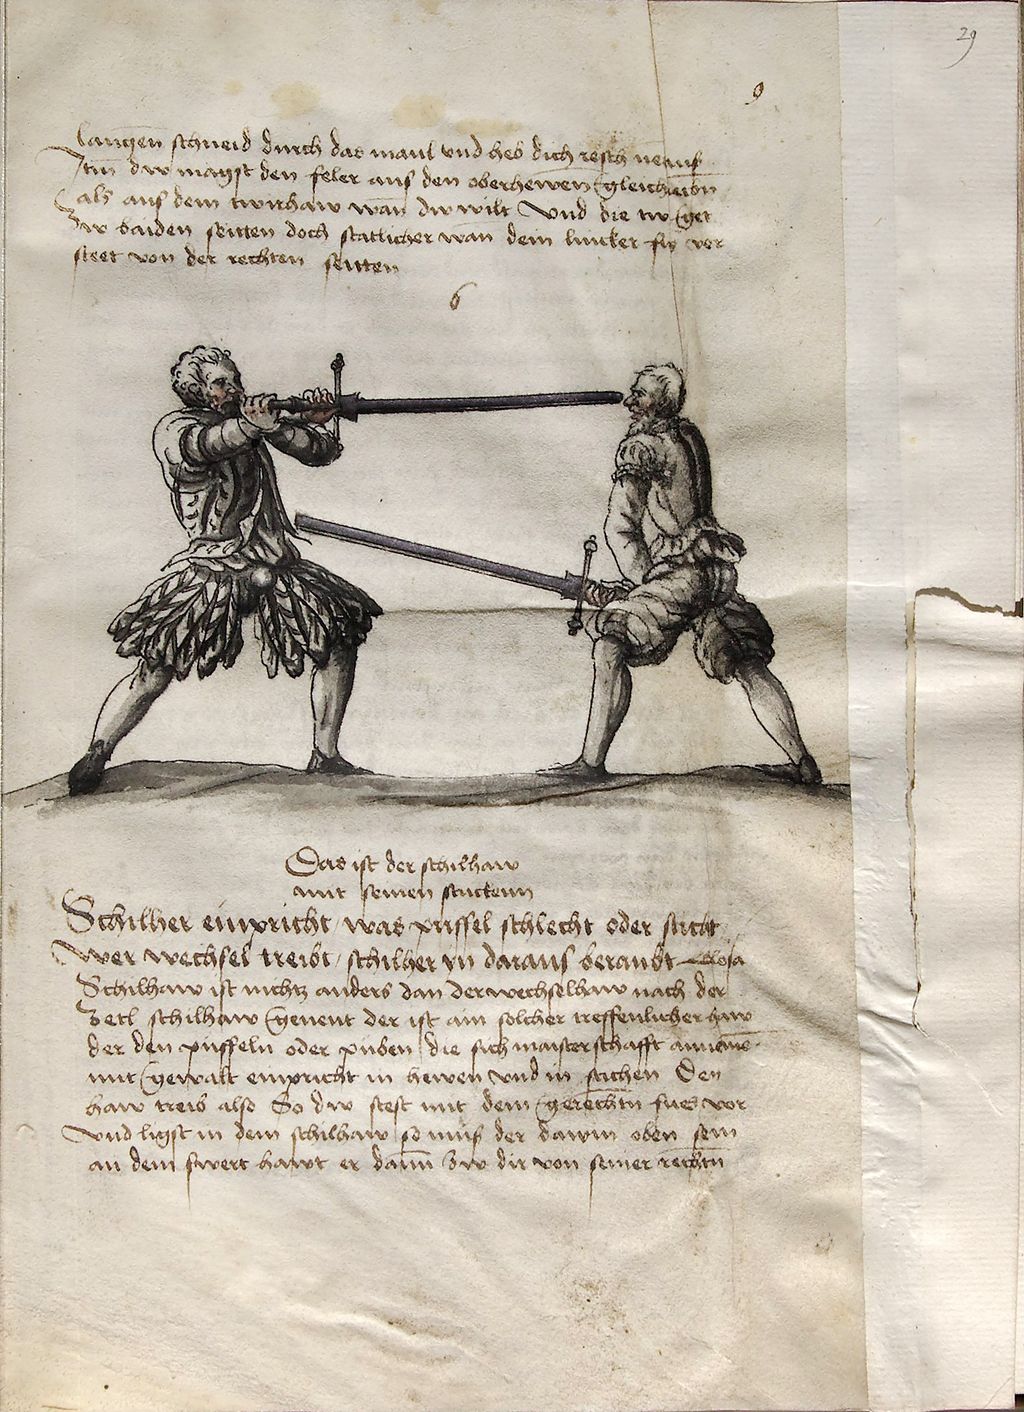 29
9
langen schneid durch das maul vnd heb dich resch
Itm dw magst den feler aus den oberhewen gleich
als aus dem twirhaw wan dw wilt Vnd die tw
Zw baiden seitten doch statlicher wan dein lincker fus vor
steet von der rechten seitten
6
Das ist der schilhaw
mit seinen stucken
Schilher einpricht was püffel schlecht oder sticht
Wer wechsel treibt schilher in daraus beraubt Glosa
Schilhaw ist nichtz anders dan der wechselhaw nach der
Zetl schilhaw genent der ist ain solcher treffenlicher haw
der den püffeln oder püben die sich maisterschafft
mit gewalt einpricht in hewen vnd in stichen Den
haw treib also So dw stest mit dem gerechtn fues vor
vnd ligst in dem schilhaw so mus der dawm oben sein
an dem swert hawt er dann zw dir von seiner rechtn